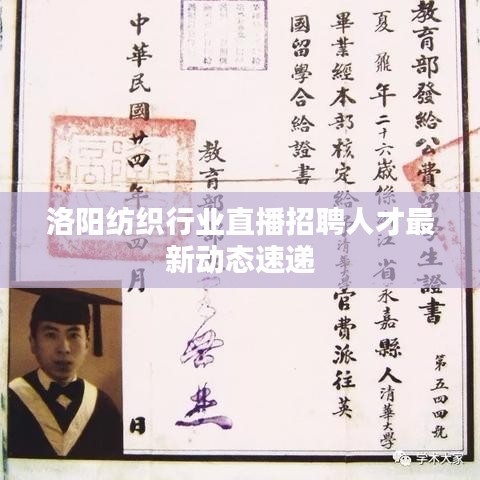 教育部發給公費留學生證書
第五四四號
夏鼐年二十六歲係浙江省永嘉縣人清華大學
畢業經本部核定給
官費派往英
國留學合給證書
教育部部
中華民國廿四年
四月
日
洛阳纺织行业直播招聘人才最
新动态速递
学术大家